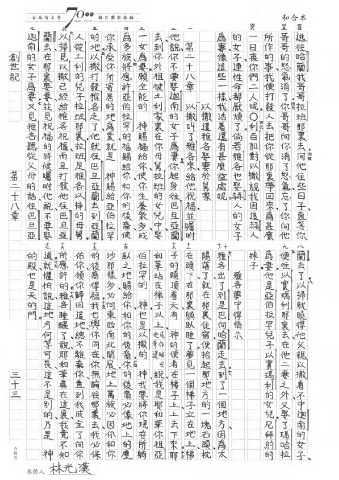 和合本
逃往哈蘭我哥哥拉班那裏去同他住些日子直等你
哥哥的怒氣消了你哥哥向你消了怒氣忘了你向他
所作的事我便打發人去把你從那裏帶回來為甚麼
一日喪你們二人呢利百加對以撒說我因這赫人
的女子連性命都厭煩了倘若雅各也娶赫人的女子
為妻像這些一樣我活着還有甚麼益處呢
以撒遣雅各娶妻於舅家
第二十八章 以撒叫了雅各來給他祝福並囑咐
他說你不要娶迦南的女子為妻你起身往巴旦亞蘭
去到你外祖彼土利家裏在你母舅拉班的女兒中娶
一女為妻願全能的 神賜福給你使你生養眾多成
為多族將應許亞伯拉罕的福賜給你和你的後裔使
你承受你所寄居的地為業就是 神賜給亞伯拉罕
的地以撒打發雅各走了他就往巴旦亞蘭去到亞蘭
人彼土利的兒子拉班那裏拉班是雅各以掃的母舅
以掃見以撒已經給雅各祝福而且打發他往巴旦亞
蘭去在那裏娶妻並見祝福的時候囑咐他說不要娶
迦南的女子為妻又見雅各聽從父母的話往巴旦亞
蘭去了以掃就曉得他父親以撒看不中迦南的女子
便往以實瑪利那裏去在他二妻之外又娶了瑪哈拉
為妻他是亞伯拉罕兒子以實瑪利的女兒尼拜約的
妹子
雅各夢中得指示
雅各出了別是巴向哈蘭走去到了一個地方因為太
陽落了就在那裏住宿便拾起那地方的一塊石頭枕
在頭下在那裏躺臥睡了夢見一個梯子立在地上梯
子的頭頂着天有 神的使者在梯子上上去下來耶
和華站在梯子以上說我是耶和華你祖亞
伯拉罕的 神也是以撒的 神我要將你現在所躺
臥之地賜給你和你的後裔你的後裔必像地上的塵
沙那樣多必向東西南北開展地上萬族必因你和你
的後裔得福我也與你同在你無論往那裏去我必保
佑你領你歸回這地總不離棄你直到我成全了向你
所應許的雅各睡醒了說耶和華真在這裏我竟不知
道就懼怕說這地方何等可畏這不是別的乃是 神
的殿也是天的門
創世記 第二十八章 三十三
林光漢